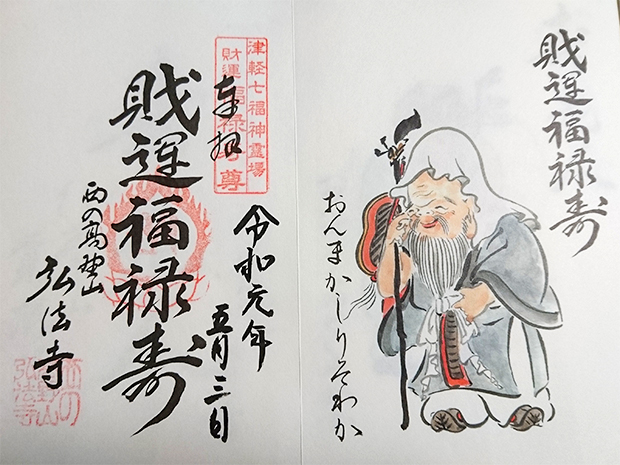 財運福禄寿
おんまかしりそわか
津軽七福神霊場
財運福禄寿尊
奉拝
令和元年
五月三日
財運福禄寿
西の高野山
弘法寺